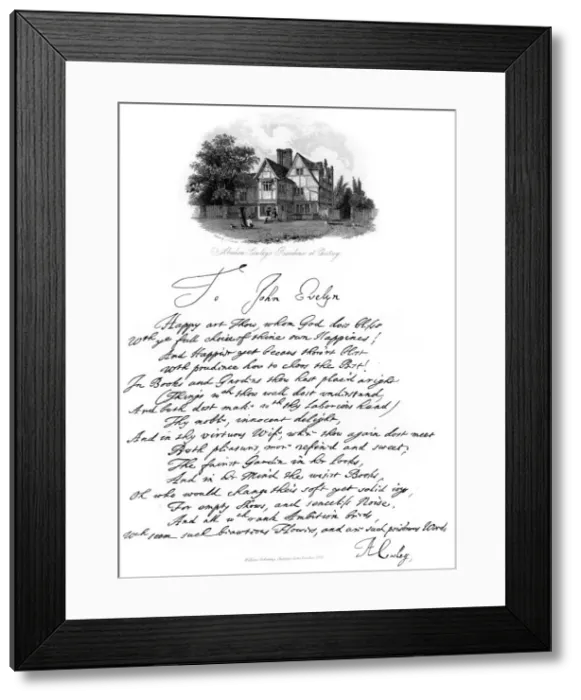 Abraham Cowley's Residence at Chertsey
To John Evelyn
Happy art Thou, whom God does bless
With ye full choice of thine own Happiness!
And Happier yet because thou'rt blest
With prudence how to chose the Best!
In Books and Gardens thou hast plac'd aright
(Things wch thou well dost understand,
And both dost make wth thy laborious hand)
Thy noble, innocent delight,
And in thy virtuous Wife, where thou again dost meet
Both pleasures more refin'd and sweet;
The fairest Garden in her looks,
And in her Mind the wisest Books.
Oh who would change these soft yet solid joys,
For empty Shows, and senceless Noise,
And all wch rank Ambition breeds,
wch seem such beauteous Flowers, and are such poisonous Weeds
ACowley,